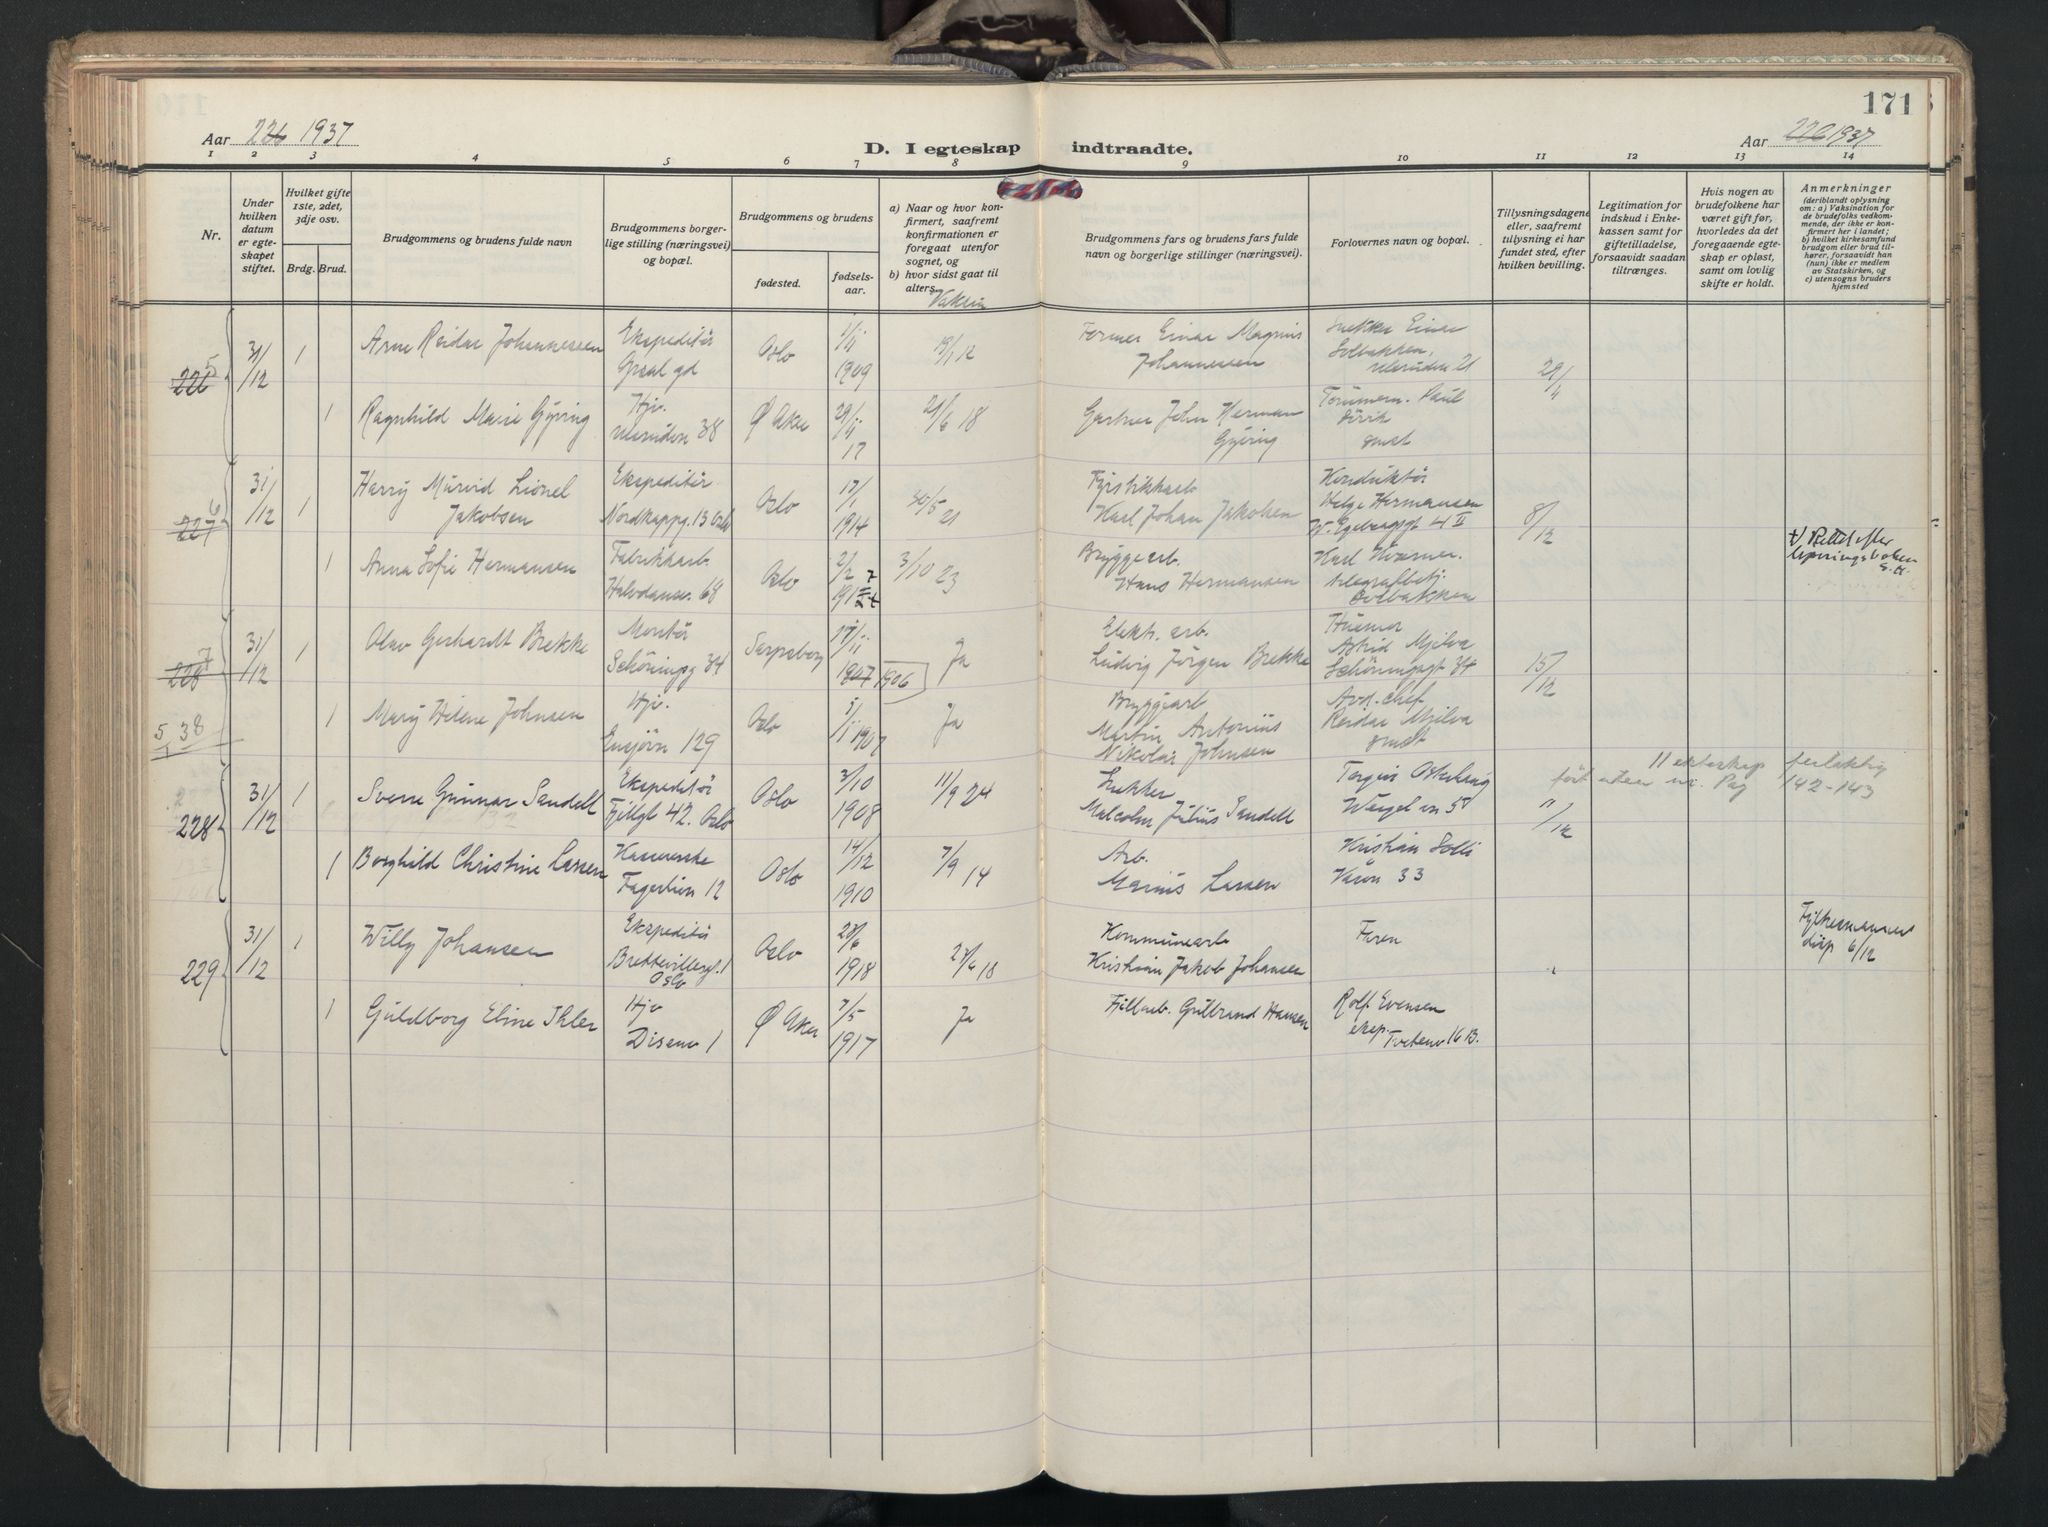 171
Aar 226 1937
D. I egteskap indtraadte.
Aar 226 1937
1 2 3 4 5 6 7 8 9 10 11 12 13 14
Nr.
Under hvilken datum er egteskapet stiftet.
Hvilket gifte 1ste, 2det, 3dje osv.
Brdg. Brud.
Brudgommens og brudens fulde navn
Brudgommens borgerlige stilling (næringsvei) og bopæl.
Brudgommens og brudens
fødested.
fødselsaar.
a) Naar og hvor konfirmert, saafremt konfirmationen er foregaat utenfor sognet, og
b) hvor sidst gaat til alters.
Brudgommens fars og brudens fars fulde navn og borgerlige stillinger (næringsvei).
Forlovernes navn og bopæl.
Tillysningsdagene eller, saafremt tillysning ei har fundet sted, efter hvilken bevilling.
Legitimation for indskud i Enkekassen samt for giftetilladelse, forsaavidt saadan tiltrænges.
Hvis nogen av brudefolkene har været gift før, hvorledes da det foregaaende egteskap er opløst, samt om lovlig skifte er holdt.
Anmerkninger (deriblandt oplysning om: a) Vaksination for de brudefolks vedkommende, der ikke er konfirmert her i landet; b) hvilket kirkesamfund brudgom eller brud tilhører, forsaavidt han (hun) ikke er medlem av Statskirken, og c) utensogns bruders hjemsted
226 5
31/12 1 Arne Reidar Johannessen
Ekspeditør
Oslo
1/4 1909
19/1 12
Former Einar Magnus Johannessen
Snekker Einar Solbakken, Ulsruden 21
29/4
1 Ragnhild Marie Gyring
Hjv. Ulsruden 38
Ø Aker
29/4 17
21/6 18
Gartner John Herman Gyring
Paul
smst
227 6
31/12 1 Harry Murvid Lionel Jakobsen
Ekspeditør Nordkappg. 13 Oslo
Oslo
17/1 1914
20/5 21
Fyrstikkarb. Karl Johan Jakobsen
Konduktør Helge Hermansen W. Egebergsgt 4 II
8/12
1 Anna Sofie Hermansen
Fabrikkarb. Halvdanse. 68
Oslo
2/2
3/10 23
Bryggearb. Hans Hermansen
Karl Telegrafbetj. Solbakken
Rettet efter E.H.
228 7
31/12 1 Olav Gerhardt Brekke
Montør Schöningsg 34
Sarpsborg
1907 1906
Ja
Elektr. arb. Ludvig Jörgen Brekke
Husmor Astrid Mjilva Schöningsgt 34
15/12
5 38
1 Mary Helene Johnsen
Hjv. Ensjøvn 129
Oslo
1/1 1907
Ja
Bryggiarb Martin Antonius Nikolai Johnsen
Avd. chef Reidar Mjilva smst
228
31/12 1 Sverre Gunnar Sandell
Ekspeditør Fjellgt 42. Oslo
Oslo
3/10 1908
11/9 24
Snekker Malcolm Julius Sandell
Torgeir
11/12
11 ekteskap feilaktig ført Pag 142-143
1 Borghild Christine Larsen
Kassererske Fagerlien 12
Oslo
14/12 1910
7/9 14
Arb. Marius Larsen
Kristian Solli 33
229
31/12 1 Willy Johansen
Ekspeditør Brettevillesgt. 1 Oslo
Oslo
28/6 1918
Kommunearb Kristian Jakob Johansen
Faren
Fylkesmannens disp 6/12
1 Guldborg Eline Ihler
Hjv Disenv 1
Ø Aker
7/5 1917
Ja
Gulbrand Hansen
Rolf Evensen eksp. Tvetenv 16 B.